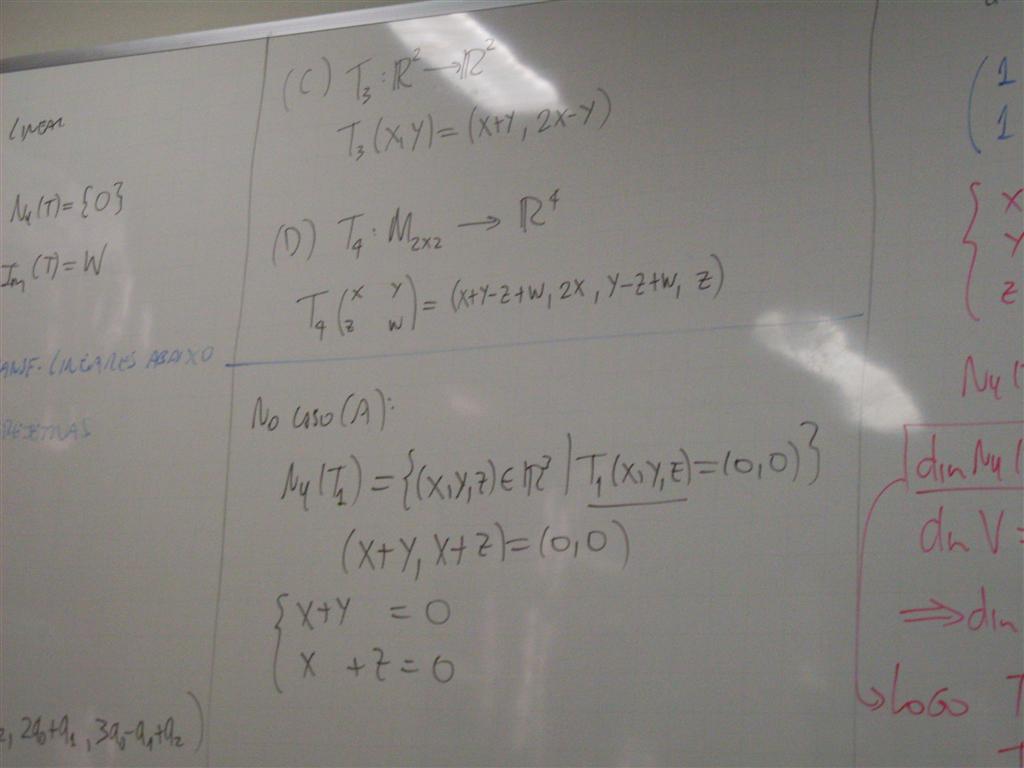 linear
Nu(T)={0}
Im(T)=W
LINEARES ABAIXO
, 2a₀+a₁, 3a₀-a₁+a₂)
(C) T₃: ℝ²→ℝ²
T₃(x,y)=(x+y, 2x-y)
(D) T₄: M₂ₓ₂ → ℝ⁴
T₄(x y
z w)=(x+y-z+w, 2x, y-z+w, z)
No caso (A):
Nu(T₁)={(x,y,z)∈ℝ³ | T₁(x,y,z)=(0,0)}
(x+y, x+z)=(0,0)
{x+y =0
x +z=0
(1
1
{x
y
z
Nu(
dim Nu(
dim V =
⟹dim
Logo T